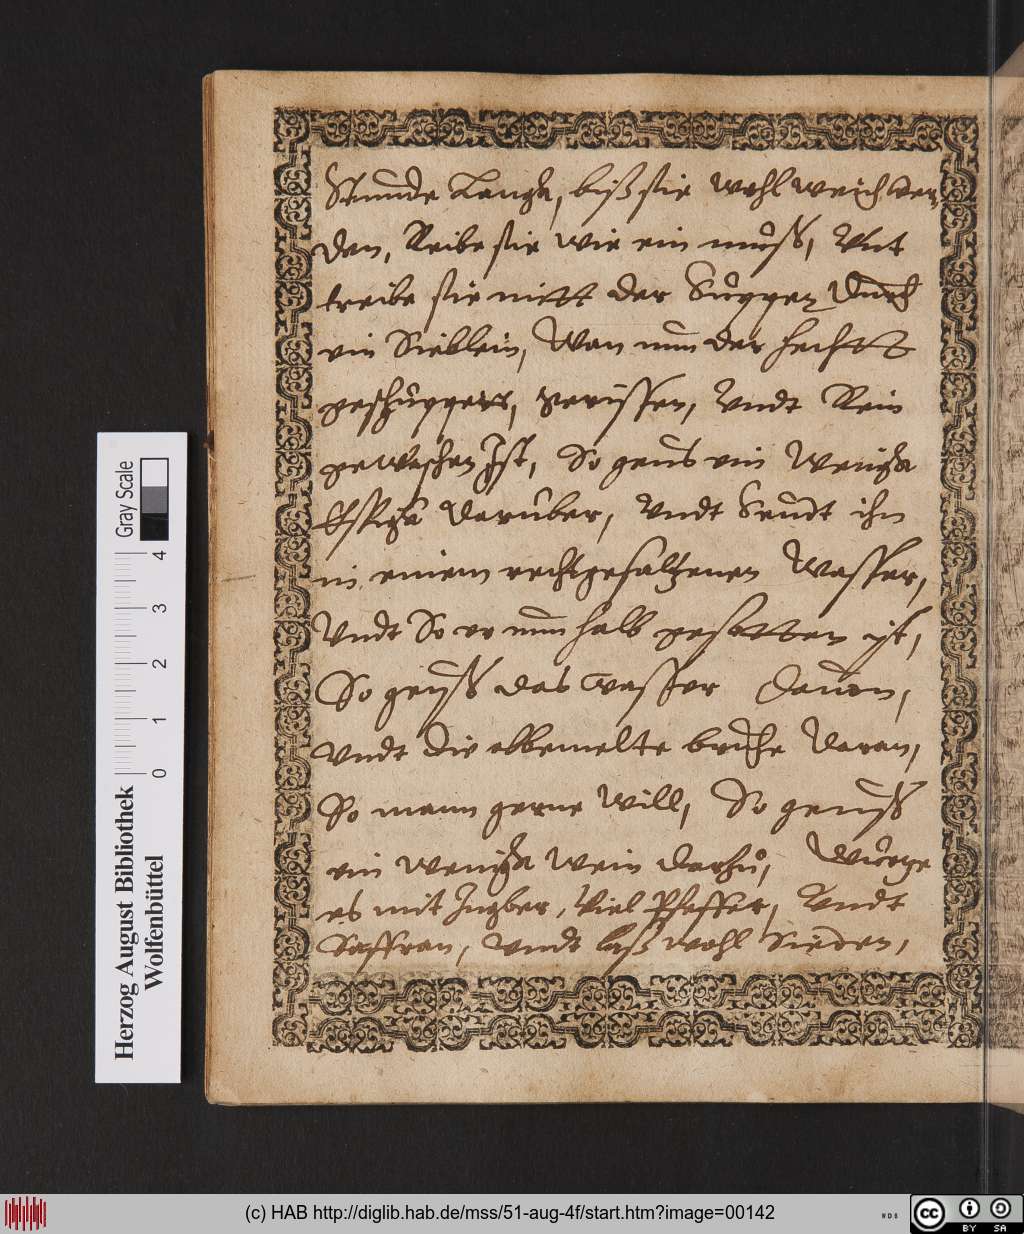 Stunde Lanngk, biß sie wohl weich wer,
den, Reibe sie wie ein muoß, Undt
treibe sie mitt der Suppen Durch
ein Sieblein, Wan nun der hechtt
geschuppett, gerissen, Undt Rein
gewaschen Ist, So geuß ein Wenigk
Essigk darüber, Undt Seudt ihn
in einem rechtgesaltzenen Wasser,
Undt So er nun halb gesotten ist,
So geuß das wasser Davon,
Undt die obbemelte brühe Daran,
So mann gerne Will, So geuß
ein wenigk Wein darzu, Würtze
es mit Ingber, Viel Pfeffer, Undt
Saffran, Undt laß wohl Sieden,
Herzog August Bibliothek
Wolfenbüttel
0 1 2 3 4
Gray Scale
(c) HAB http://diglib.hab.de/mss/51-aug-4f/start.htm?image=00142
WDB
cc BY SA